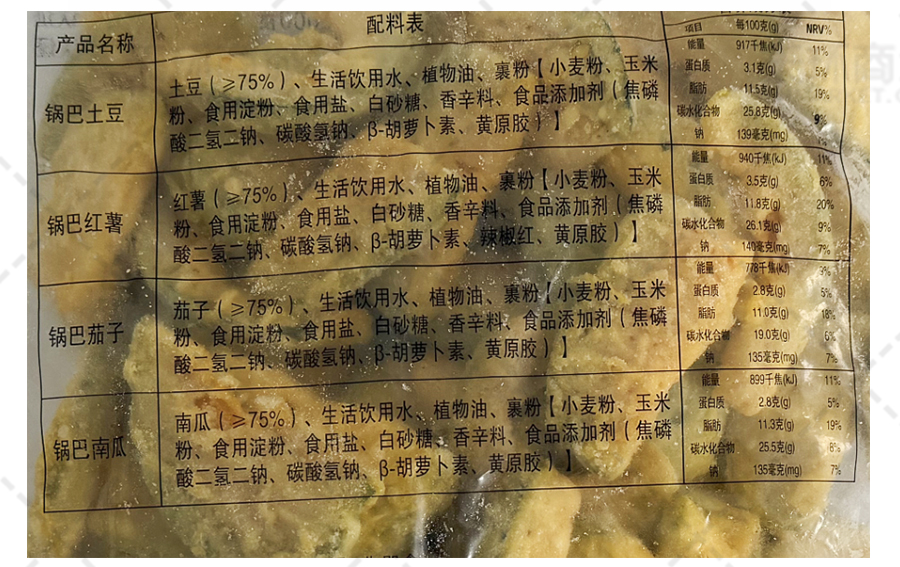 产品名称 配料表 项目 每100克(g) NRV%
锅巴土豆
土豆（≥75%）、生活饮用水、植物油、裹粉【小麦粉、玉米
粉、食用淀粉、食用盐、白砂糖、香辛料、食品添加剂（焦磷
酸二氢二钠、碳酸氢钠、β-胡萝卜素、黄原胶）】
能量 917千焦(kJ) 11%
蛋白质 3.1克(g) 5%
脂肪 11.5克(g) 19%
碳水化合物 25.8克(g) 9%
钠 139毫克(mg)
锅巴红薯
红薯（≥75%）、生活饮用水、植物油、裹粉【小麦粉、玉米
粉、食用淀粉、食用盐、白砂糖、香辛料、食品添加剂（焦磷
酸二氢二钠、碳酸氢钠、β-胡萝卜素、辣椒红、黄原胶）】
能量 940千焦(kJ) 11%
蛋白质 3.5克(g) 6%
脂肪 11.8克(g) 20%
碳水化合物 26.1克(g) 9%
钠 140毫克(mg) 7%
锅巴茄子
茄子（≥75%）、生活饮用水、植物油、裹粉【小麦粉、玉米
粉、食用淀粉、食用盐、白砂糖、香辛料、食品添加剂（焦磷
酸二氢二钠、碳酸氢钠、β-胡萝卜素、黄原胶）】
能量 778千焦(kJ) 9%
蛋白质 2.8克(g) 5%
脂肪 11.0克(g) 18%
碳水化合物 19.0克(g) 6%
钠 135毫克(mg) 7%
锅巴南瓜
南瓜（≥75%）、生活饮用水、植物油、裹粉【小麦粉、玉米
粉、食用淀粉、食用盐、白砂糖、香辛料、食品添加剂（焦磷
酸二氢二钠、碳酸氢钠、β-胡萝卜素、黄原胶）】
能量 899千焦(kJ) 11%
蛋白质 2.8克(g) 5%
脂肪 11.3克(g) 19%
碳水化合物 25.5克(g) 8%
钠 135毫克(mg) 7%